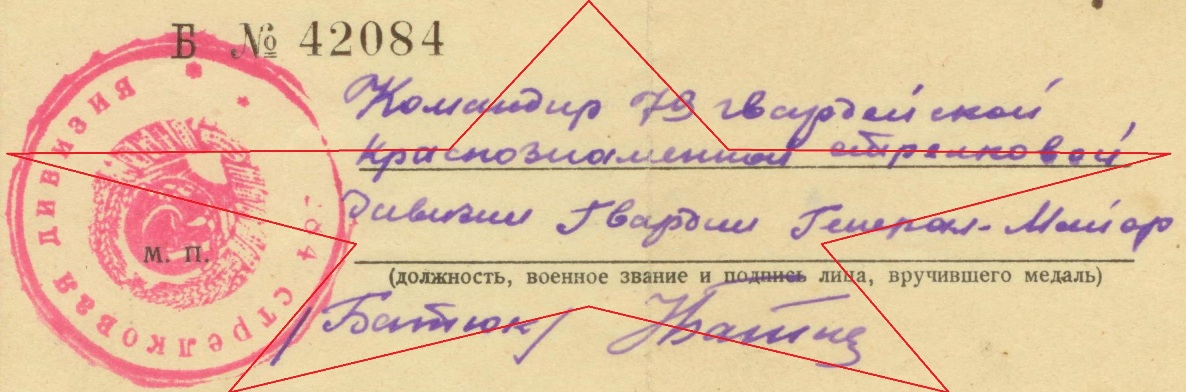 Б № 42084
Командир 79 гвардейской
Краснознаменной стрелковой
дивизии Гвардии Генерал-Майор
(должность, военное звание и подпись лица, вручившего медаль)
/Батюк/
М. П.
284 СТРЕЛКОВАЯ ДИВИЗИЯ